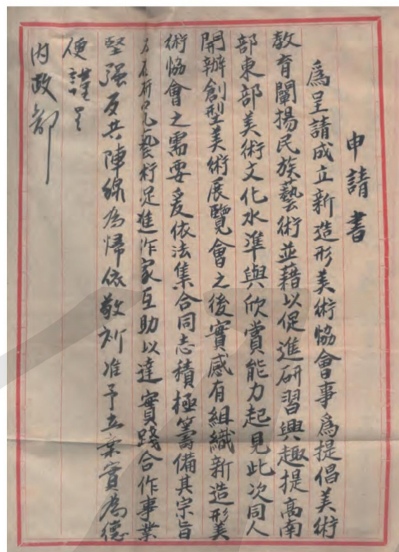 申請書
為呈請成立新造形美術協會事為提倡美術
教育闡揚民族藝術並藉以促進研習興趣提高南
部東部美術文化水準與欣賞能力起見此次同人
開辦創型美術展覽會之後實感有組織新造形美
術協會之需要爰依法集合同志積極籌備其宗旨
研究藝術促進作家互助以達實踐合作事業
堅強反共陣線為歸依敬祈准予立案實為德
便謹呈
內政部